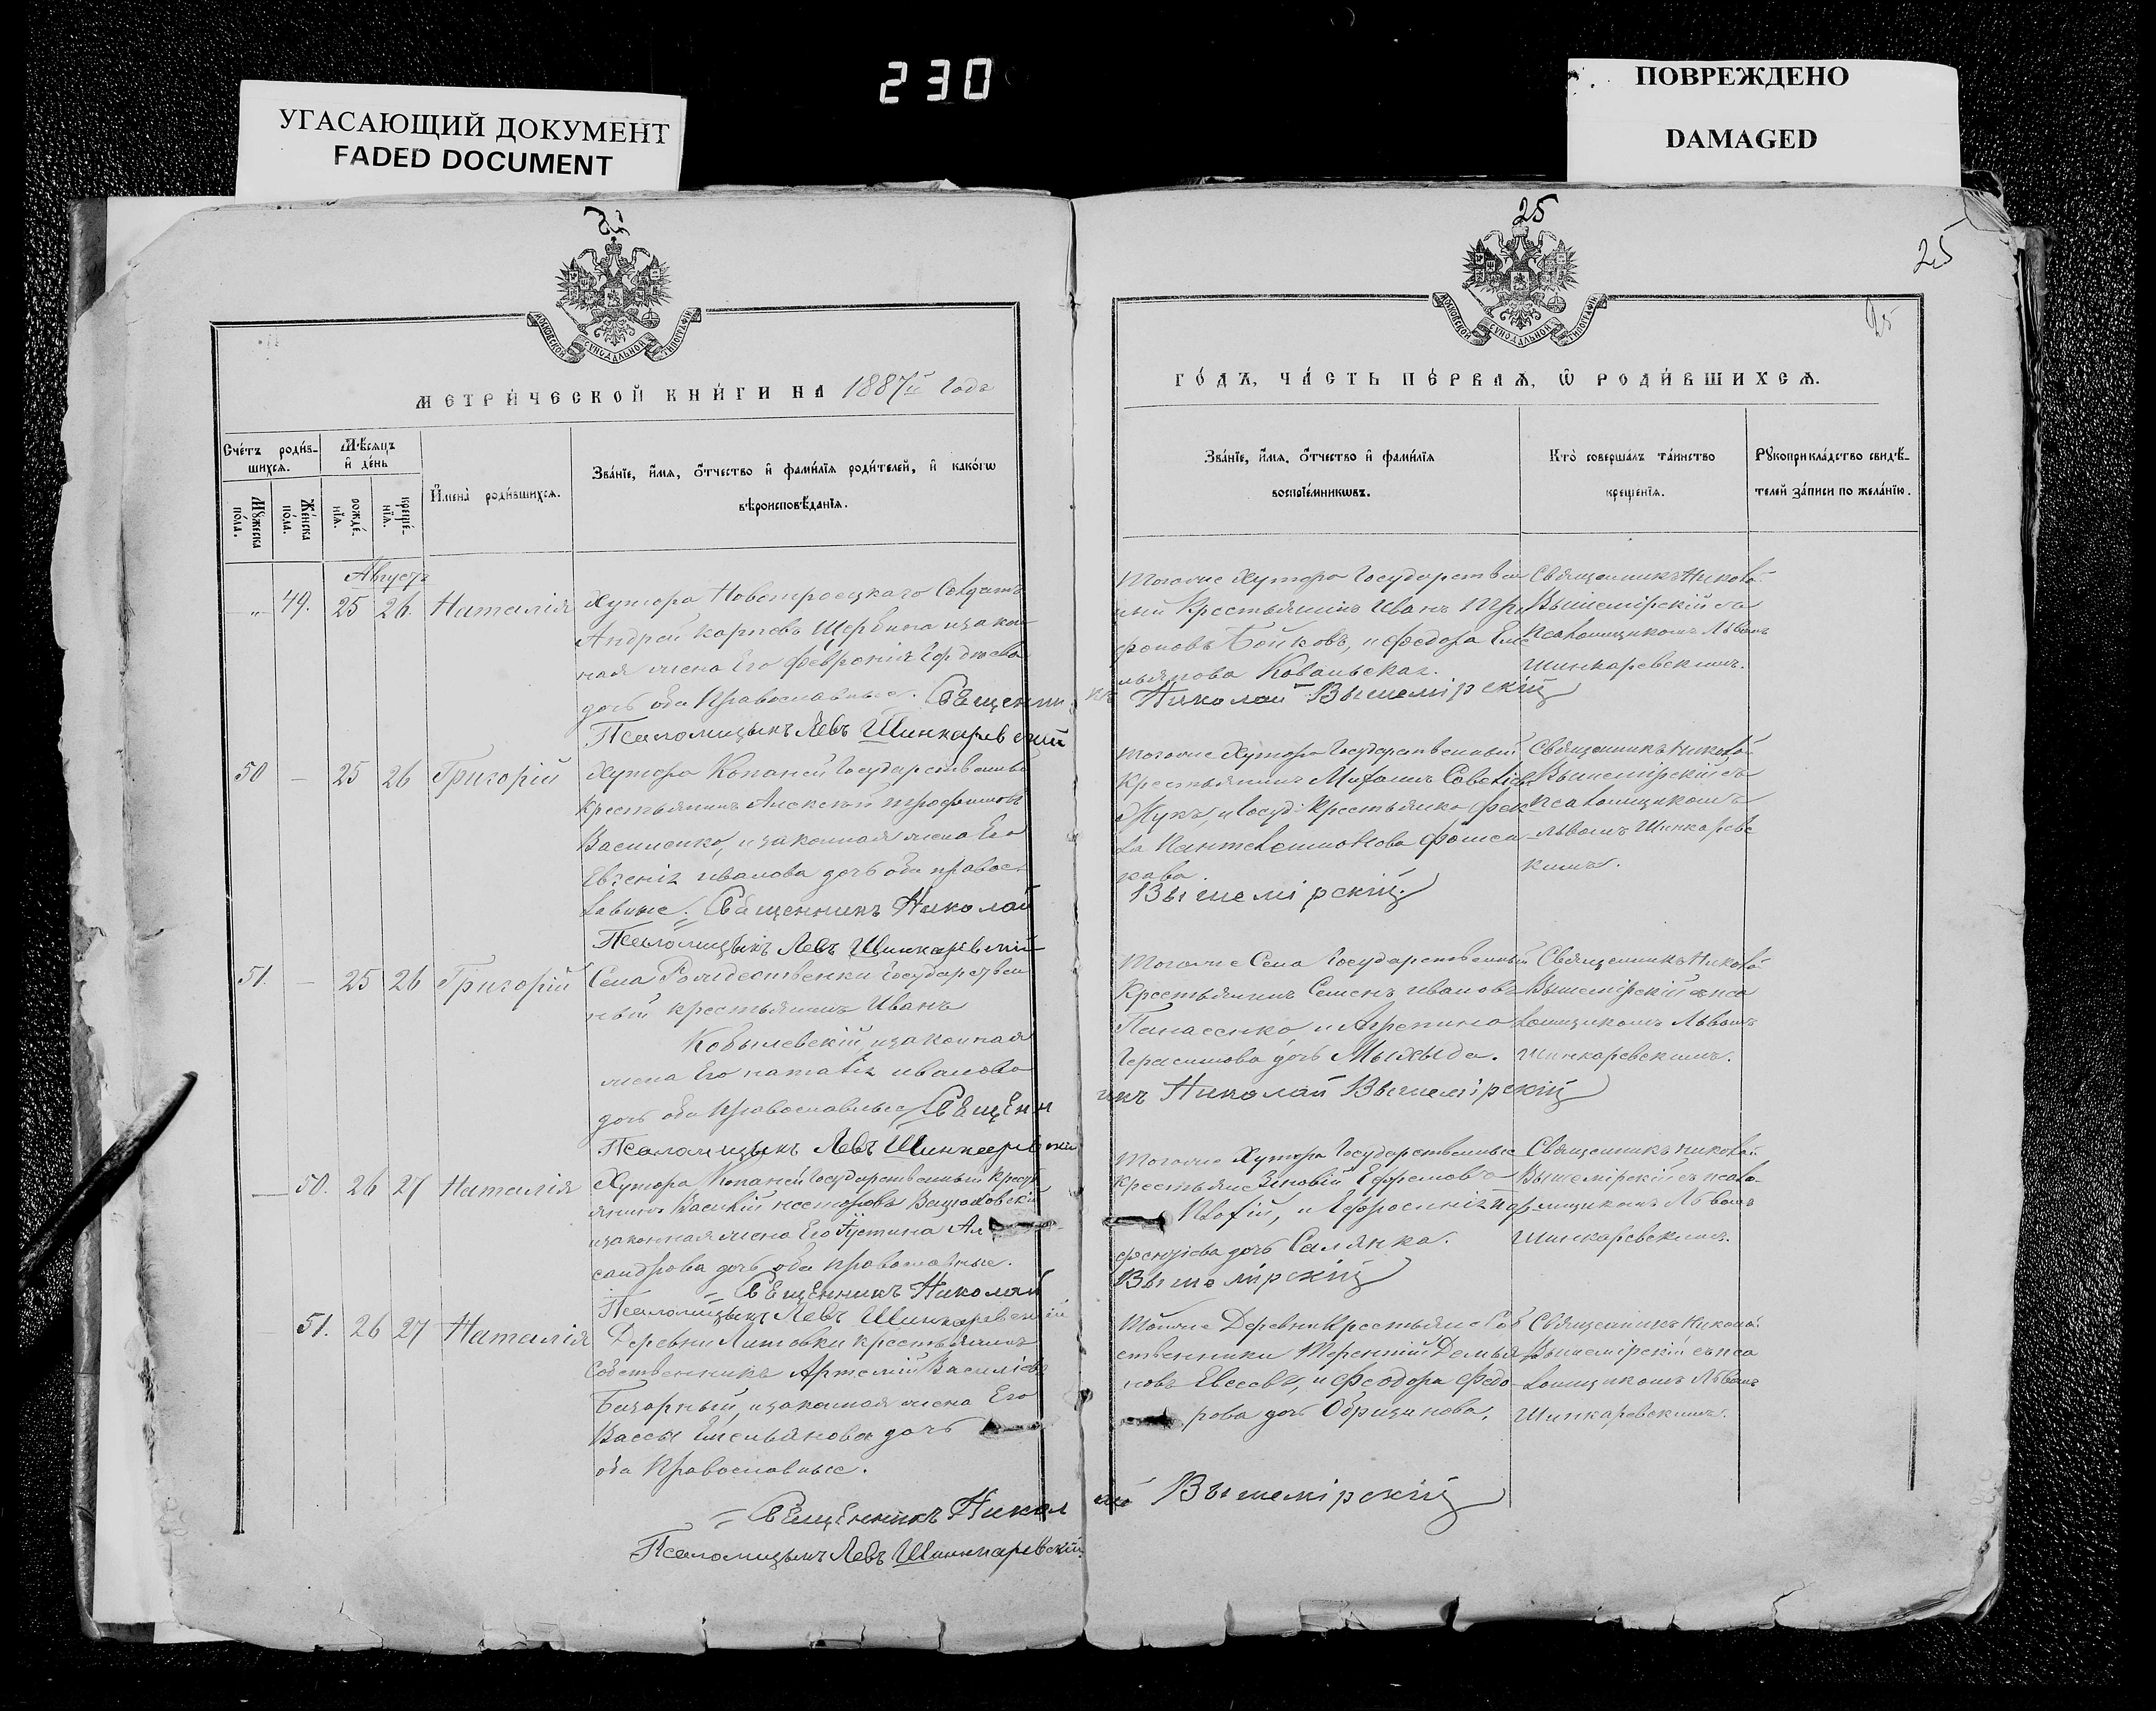 230
УГАСАЮЩИЙ ДОКУМЕНТ
FADED DOCUMENT
ПОВРЕЖДЕНО
DAMAGED
25
25
25
МОСКОВСКОЙ СѴНОДАЛЬНОЙ ТИПОГРАФІИ
МЕТРИ́ЧЕСКОЙ КНИ́ГИ НА 1887й Годъ
Сче́тъ роди́в-
шихсѧ.
Мѣ́сѧцъ
и҆ де́нь
Мꙋ́жеска по́ла.
Же́нска по́ла.
рожде́нїѧ.
креще́нїѧ.
И҆мена̀ роди́вшихсѧ.
Зва́нїе, и҆́мѧ, ѻ҆́тчество и҆ фами́лїѧ роди́телей, и҆ како́гѡ
вѣроисповѣ́данїѧ.
Августъ
„ 49. 25 26. Наталія
Хутора Новотроецкаго Солдатъ
Андрей Карпевъ Щербина и закон
ная жена Его Феврония
дочь оба Православные. Священни
Псаломщикъ Левъ Шинкаревскій
50 — 25 26 Григорій
Хутора Копаней Государственный
Крестьянинъ Алексей Трофимовъ
Василенко, и законная жена Его
Евгенія Иванова дочь оба правос
лавные. Священникъ Николай
Псаломщикъ Левъ Шинкаревскій
51. — 25 26 Григорій
Села Рождественки Государствен
ный крестьянинъ Иванъ
Кобылевскій, и законная
жена Его Наталія Иванова
дочь оба Православные Священ
Псаломщикъ Левъ Шинкаревскій
— 50. 26 27 Наталія
Хутора Копаней Государственный Крест
янинъ Василій Несторовъ
и законная жена Его Устина Ал
сандрова дочь оба православные.
Священникъ Николай
Псаломщикъ Левъ Шинкаревскій
51. 26 27 Наталія
Деревни Литовки крестьянинъ
Собственникъ Артемій Василіевъ
Базарный, и законная жена Его
Васса Емельянова дочь
оба Православные.
Священникъ Никол
Псаломщикъ Левъ Шинкаревскій.
ГО́ДЪ, ЧА́СТЬ ПЕ́РВАѦ, Ѡ҆ РОДИ́ВШИХСѦ.
Зва́нїе, и҆́мѧ, ѻ҆́тчество и҆ фами́лїѧ
воспрїе́мникѡвъ.
Кто̀ соверша́лъ та́инство
креще́нїѧ.
Рꙋкоприкла́дство свидѣ́-
телей за́писи по жела́нїю.
Тогоже Хутора Государствен
ный Крестьянинъ Иванъ Три
фоновъ Бойковъ, и Федора Еме
льянова Ковальская.
Священникъ Никола
Вышемірскій съ
псаломщикомъ Львомъ
Шинкаревскимъ.
къ Николай Вышемірскій
Тогоже Хутора Государственный
Крестьянинъ Михаилъ Савеліевъ
Жукъ, и Госуд: Крестьянка Фек
ла Пантелеимонова
Священникъ Николай
Вышемірскій съ
псаломщикомъ
Львомъ Шинкаревс
кимъ.
Вышемірскій.
Тогоже Села Государственный
Крестьянинъ Семенъ Ивановъ
Панасенко и Агрепина
Герасимова дочь
Священникъ Николай
Вышемірскій съ пса
ломщикомъ Львомъ
Шинкаревскимъ.
икъ Николай Вышемірскій
Тогоже Хутора Государственные
крестьяне Зіновій Ефремовъ
и Ефросинія Пор
фенріева дочь Салянка.
Священникъ Николай
Вышемірскій съ псало
мщикомъ Львомъ
Шинкаревскимъ.
Вышемірскій
Тойже Деревни Крестьяне Соб
ственники Терентій Демья
новъ Евсеевъ, и Феодора Федо
рова дочь
Священникъ Николай
Вышемірскій съ пса
ломщикомъ Львомъ
Шинкаревскимъ.
ай Вышемірскій